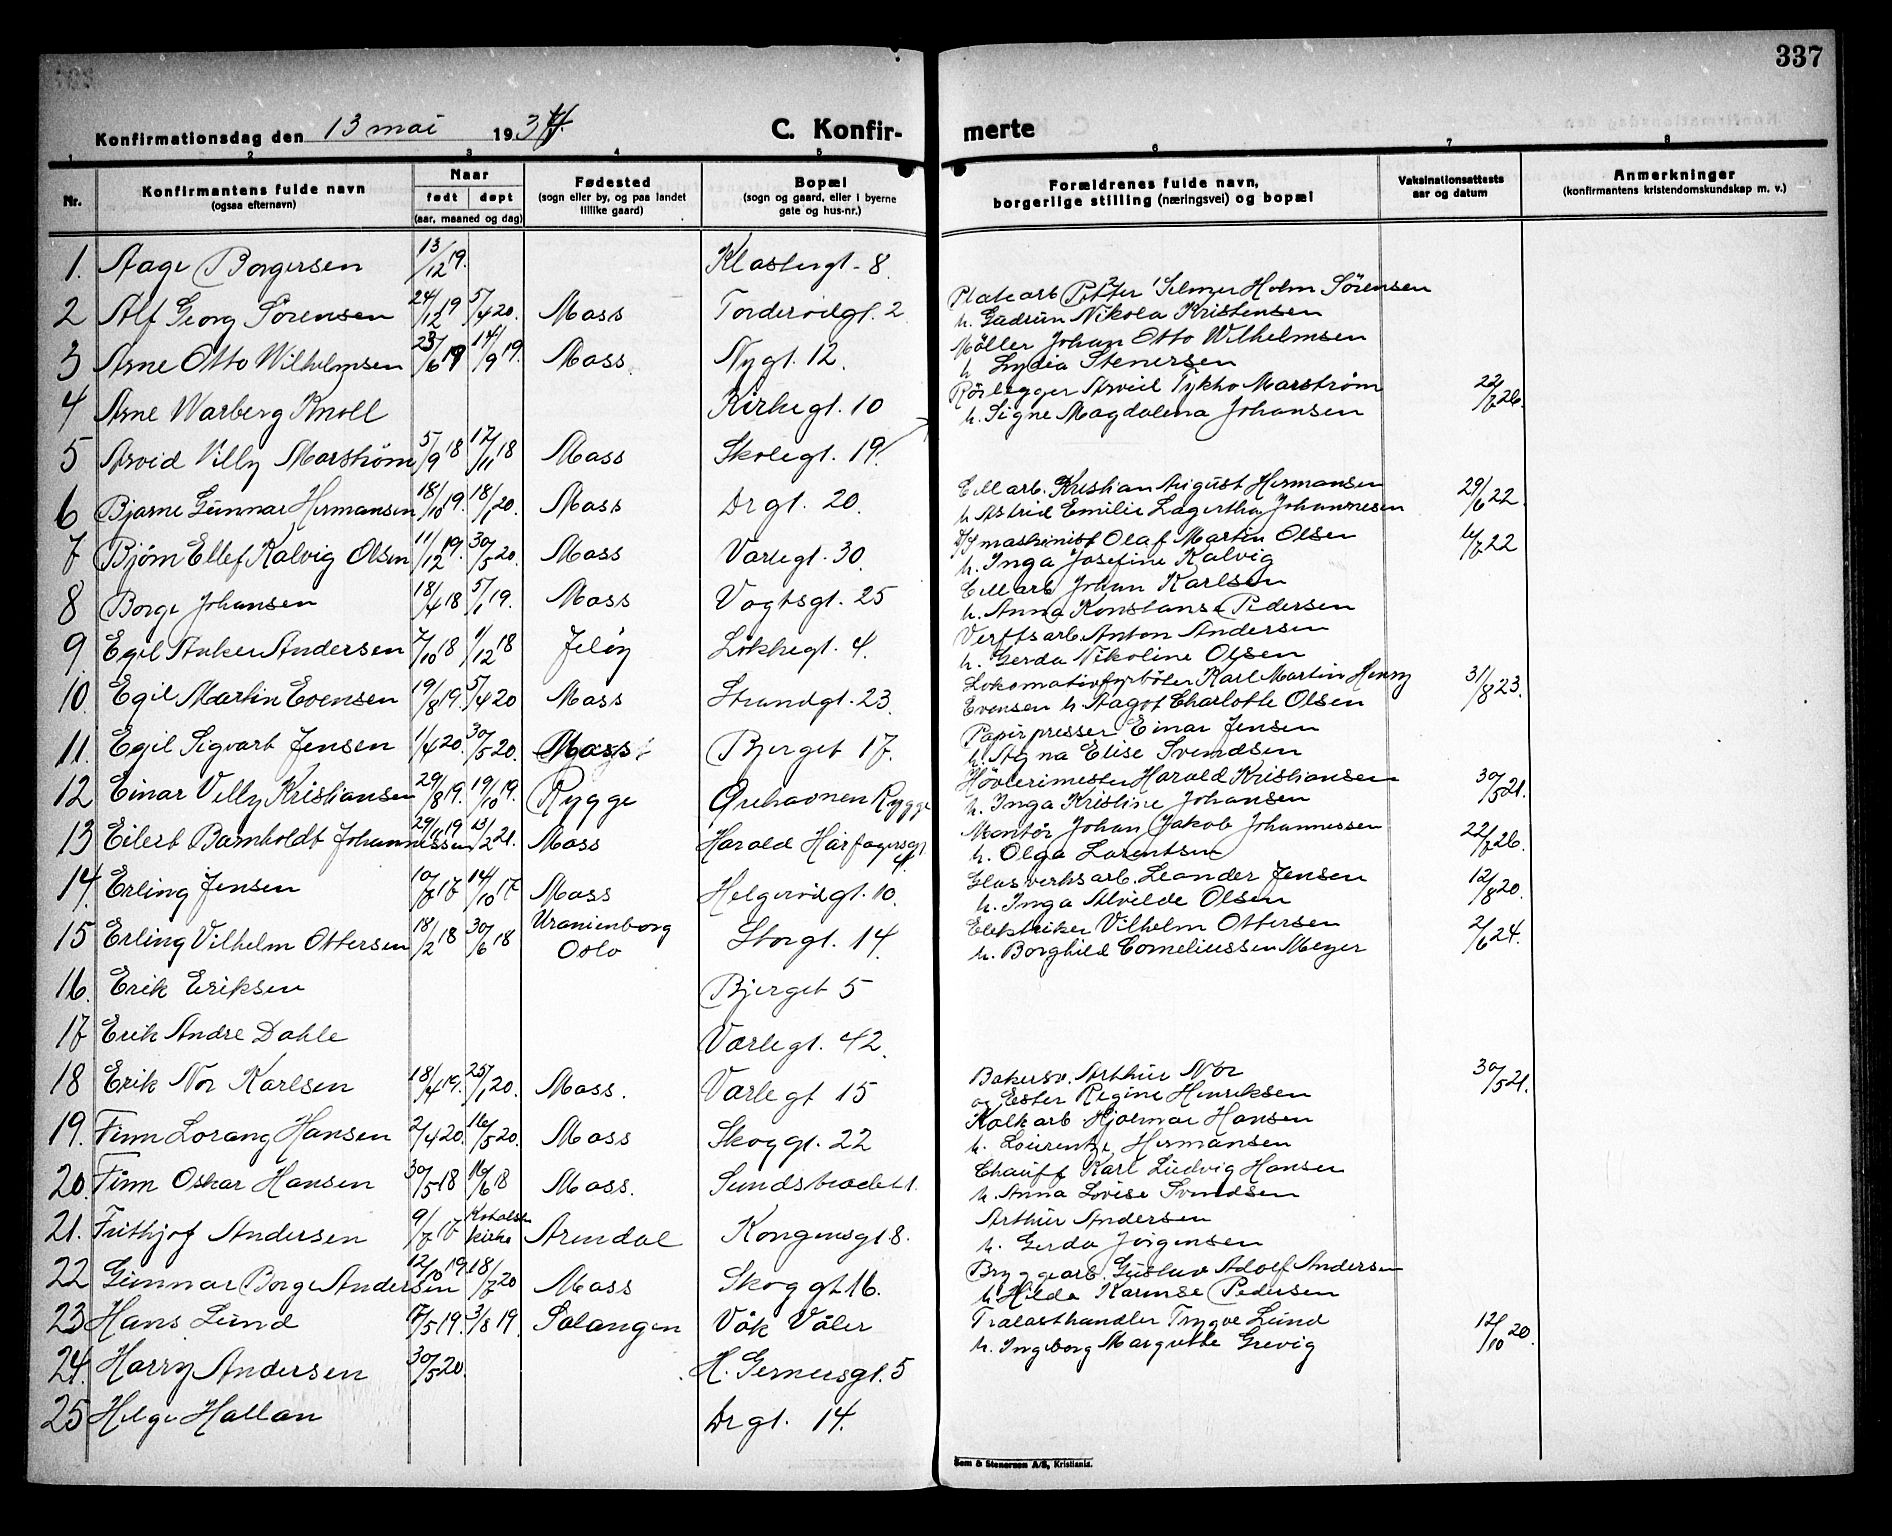 337
Konfirmationsdag den 13 mai 1934.
C. Konfirmerte
1 2 3 4 5 6 7 8
Nr.
Konfirmantens fulde navn
(ogsaa efternavn)
Naar
født døpt
(aar, maaned og dag)
Fødested
(sogn eller by, og paa landet
tillike gaard)
Bopæl
(sogn og gaard, eller i byerne
gate og hus-nr.)
Forældrenes fulde navn,
borgerlige stilling (næringsvei) og bopæl
Vaksinationsattests
aar og datum
Anmerkninger
(konfirmantens kristendomskundskap m. v.)
1. Aage Borgersen 13/12 19. Klostergt. 8.
2 Alf Georg Sørensen 24/12 19 5/4 20. Moss Torderødgt. 2
Platearb Petter Selmer Holm Sørensen
h. Gudrun Nikola Kristensen
3 Arne Otto Wilhelmsen 23/6 19 14/9 19. Moss. Nygt. 12.
Møller Johan Otto Wilhelmsen
h Lydia Stenersen
4 Arne Warberg Knoll Kirkegt. 10
5 Arvid Villy Marstrøm 5/9 18 17/11 18 Moss Skolegt. 19.
Rørlegger Arvid Tykho Marstrøm 22/7 26.
h. Signe Magdalena Johansen
6 Bjarne Gunnar Hermansen 18/10 19. 18/1 20. Moss Drgt. 20.
Cell arb. Kristian August Hermansen 29/6 22.
h Astrid Emilie Lagertha Johannesen
7 Bjørn Ellef Kalvig Olsen 11/12 19. 30/5 20. Moss Varlegt. 30.
D/S maskinist Olaf Martin Olsen
h. Inga Josefine Kalvig
8 Borge Johansen 18/4 18 5/1 19. Moss Vogtsgt. 25
Cell arb Johan Karlsen
h. Anna Konstanse Pedersen
9. Egil Anker Andersen 7/10 18 1/12 18 Jeløy Løkkegt. 4.
Verftsarb. Anton Andersen
h. Gerda Nikoline Olsen
10. Egil Martin Evensen 19/8 19. 5/4 20 Moss Strandgt. 23.
Lokomotivfyrbøter Karl Martin Henry 31/8 23.
Evensen h. Aagot Charlotte Olsen
11. Egil Sigvart Jensen 1/4 20. 30/5 20. Moss Bjerget 17.
Papirpresser Einar Jensen
h. Agna Elise Svendsen
12 Einar Villy Kristiansen 29/8 19. 19/10 19. Rygge Ørehavnen Rygge
Høvlerimester Harald Kristiansen 30/5 21.
h. Inga Kristine Johansen
13 Eilert Barnholdt Johannessen 29/11 19 13/2 21. Moss Harald Hårfagersgt. 4.
Montør Johan Jakob Johannessen 22/7 26.
h. Olga Larentsen
14. Erling Jensen 10/7 17 14/10 17 Moss Helgerødgt. 10.
Glasverksarb. Leander Jensen 12/8 20.
h. Inga Alvilde Olsen
15 Erling Vilhelm Ottersen 18/2 18 30/6 18 Uranienborg Oslo Storgt. 14.
Elektriker Vilhelm Ottersen 2/6 24.
h. Borghild Corneliussen Meyer
16. Erik Eriksen Bjerget 5
17 Erik Andre Dahle Varlegt. 42.
18 Erik Nor Karlsen 18/4 19. 25/1 20. Moss. Varlegt 15
Bakersv. Arthur Nor 30/5 21.
og Ester Regine Henriksen
19. Finn Lorang Hansen 2/4 20. 16/5 20. Moss Skoggt. 22
Kalkarb Hjalmar Hansen
h. Laurentze Hermansen
20. Finn Oskar Hansen 30/5 18 16/6 18 Moss. Sundstrædet 1.
Chauff Karl Ludvig Hansen
h. Anna Lovise Svendsen
21. Frithjof Andersen 9/7 17 kirke Arendal Kongensgt 8.
Arthur Andersen
h. Gerda Jørgensen
22 Gunnar Borge Andersen 12/10 19 18/7 20 Moss Skoggt 16.
Bryggearb. Gustav Adolf Andersen
h. Hilda Karense Pedersen
23 Hans Lund 17/5 19. 3/8 19. Salangen Våk Våler
Trælasthandler Trygve Lund 12/10 20.
h. Ingeborg Margrethe Grevig
24. Harry Andersen 30/5 20. H. Gernersgt. 5
25 Helge Hallan Drgt. 14.
Sem & Stenersen A/S, Kristiania.